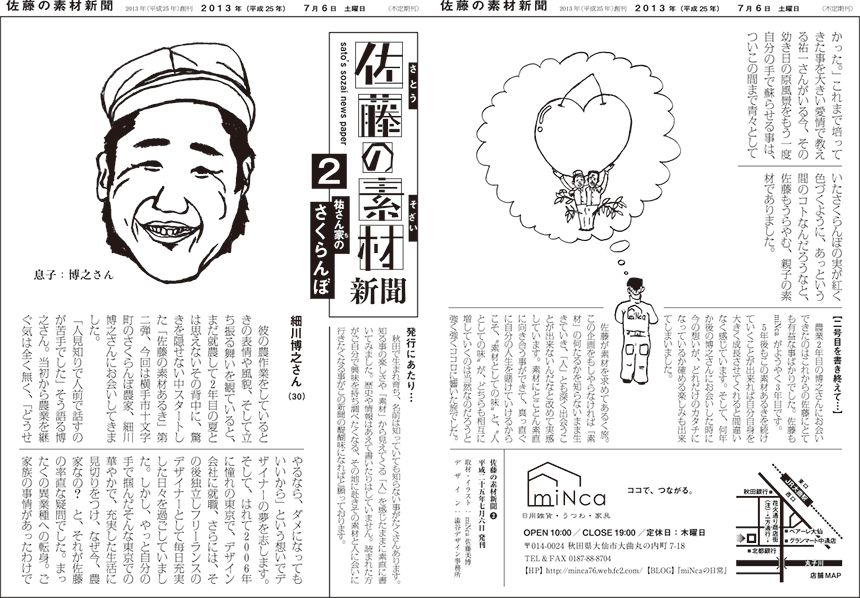 佐藤の素材新聞
2013年(平成25年)創刊
2013年(平成25年)
7月6日 土曜日
(不定期刊)
佐藤の素材新聞
2013年(平成25年)創刊
2013年(平成25年)
7月6日 土曜日
(不定期刊)
さとう
そざい
佐藤の素材
新聞
sato's sozai news paper
2
祐さん家の
さくらんぼ
息子:博之さん
発行にあたり…
秋田で生まれ育ち、名前は知っていても知らない事がたくさんあります。
知る事の楽しさや「素材」から見えてくる「人」を感じたままに素直に書
いてみました。歴史や情報はあえて書いたりはしていません。読まれた方
がご自分で興味を持ち調べたくなる、その地に赴きその素材と人に会いに
行きたくなる事がこの新聞の醍醐味になればと願っております。
細川博之さん(30)
彼の農作業をしていると
きの表情や風貌、そして立
ち振る舞いを観ていると、
まだ就農して2年目の夏と
は思えないその背中に、驚
きを隠せない中スタートし
た「佐藤の素材あるき」第
二弾、今回は横手市十文字
町のさくらんぼ農家、細川
博之さんにお会いしてきま
した。
「人見知りで人前で話すの
が苦手でした」そう語る博
之さん。当初から農業を継
ぐ気は全く無く、「どうせ
やるなら、ダメになっても
いいから」という想いでデ
ザイナーの夢を志します。
そして、はれて2006年
に憧れの東京で、デザイン
会社に就職、さらには、そ
の後独立しフリーランスの
デザイナーとして毎日充実
した日々を過ごしていまし
た。しかし、やっと自分の
手で掴んだそんな東京での
華やかで、充実した生活に
見切りをつけ、なぜ今、農
家なの?と、それが佐藤
の率直な疑問でした。まっ
たくの異業種への転身。ご
家族の事情があったわけで
かった。」これまで培って
きた事を大きい愛情で教え
る祐一さんがいる今、その
幼き日の原風景をもう一度
自分の手で蘇らせる事は、
ついこの間まで青々として
いたさくらんぼの実が紅く
色づくように、あっという
間のコトなんだろうなと、
佐藤もうらやむ、親子の素
材でありました。
【二号目を書き終えて…】
農業2年目の博之さんにお会い
できたのはこれからの佐藤にとて
も有益な事ばかりでした。佐藤も
miNcaがようやく3年目です。
5年後もこの素材あるきを続け
ていくことが出来れば自分自身を
大きく成長させてくれると間違い
なく感じています。そして、何年
か後の博之さんにお会いした時に
今の想いが、どれだけのカタチに
なっているか確める楽しみも出来
てしまいました。
佐藤が素材を求めてあるく旅。
この企画をもしやらなければ「素
材」の何たるかを知らないまま生
きていき、「人」とも深く出会うこ
とが出来ないんだなと改めて実感
しています。素材にとことん素直
に向き合う事ができて、真っ直ぐ
に自分の人生を賭けていけるから
こそ、「素材としての味」と、「人
としての味」が、どちらも相互に
増していくのは当然なのだろうと
強く強くココロに響いた旅でした。
佐藤の素材新聞 2
平成二十五年七月六日 発行
取材・イラスト:miNca 佐藤美博
デザイン:澁谷デザイン事務所
miNca
日川雑貨・うつわ・家具
ココで、つながる。
OPEN 10:00 / CLOSE 19:00 / 定休日:木曜日
〒014-0024 秋田県大仙市大曲丸の内町 7-18
TEL & FAX 0187-88-8704
【HP】http://minca76.web.fc2.com/【BLOG】『miNcaの日常』
東口
JR大曲駅
西口
秋田銀行
花火通り商店街
(注:一方通行)
ペアーレ大仙
グランマート中通店
北都銀行
丸子川
店舗MAP